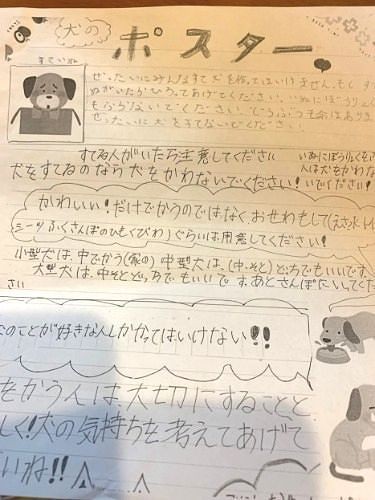 犬の
ポスター
すていぬ
ぜったいにみんなすて犬を作ってはいけません。もし すて
ぬがいたらひろってあげてください。いぬにぼうりょく
もふるわないでください。
ぜったいに犬をすてないでください!
すてる人がいたら注意してください
犬をすてるのなら犬をかわないでください!
いぬにぼうりょくをふ
人は犬をかわな
いでください!
かわいい!だけでかうのではなく、おせわもして(えさ水トイ
シーツふくさんぽのひもくびわ)ぐらいは用意してください!
小型犬は、中でかう(家の)中型犬は、(中・そと)どっちでもいいです
大型犬は、中そとどっちでもいいです。あとさんぽにいってくだ
さい
のことが好きな人しかかってはいけない!!
をかう人は大切にすることと
しく!犬の気持ちを考えてあげて
いね!!